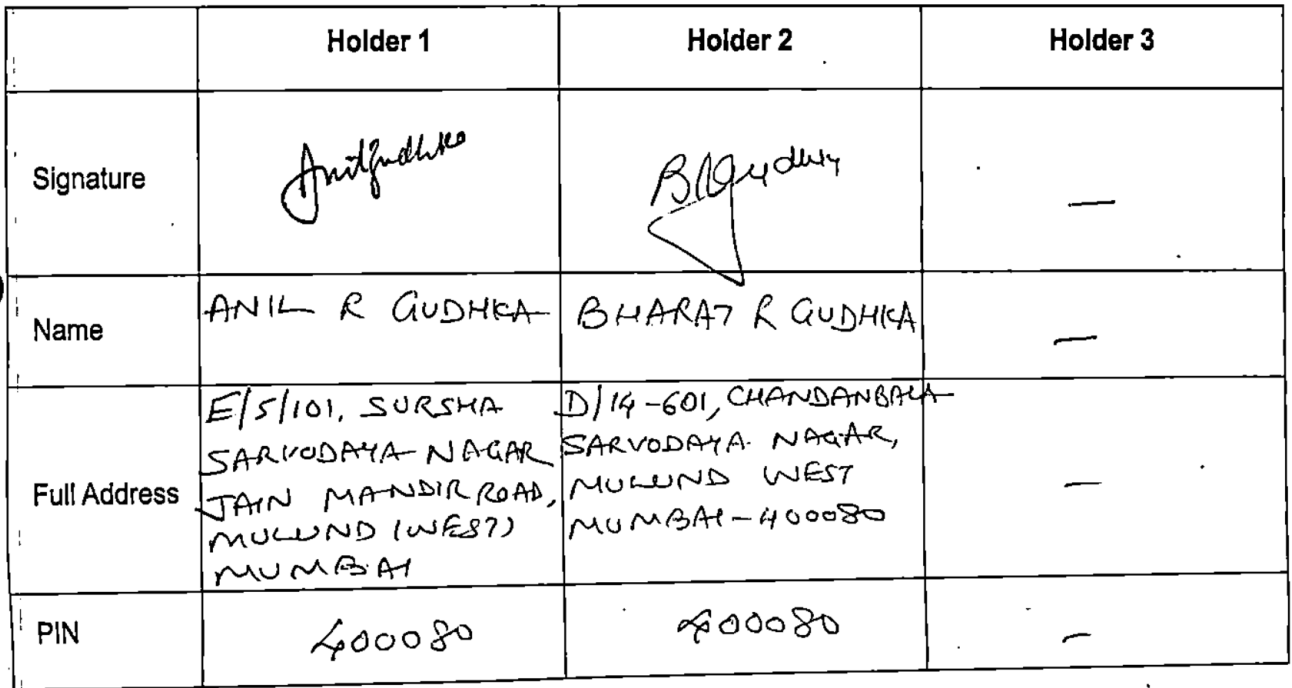 Holder 1 Holder 2 Holder 3
Signature
Name ANIL R GUDHKA BHARAT R GUDHKA —
Full Address
E/5/101, SURSHA
SARVODAYA NAGAR
JAIN MANDIR ROAD,
MULUND (WEST)
MUMBAI
D/14-601, CHANDANBALA
SARVODAYA NAGAR,
MULUND WEST
MUMBAI-400080
—
PIN 400080 400080 —